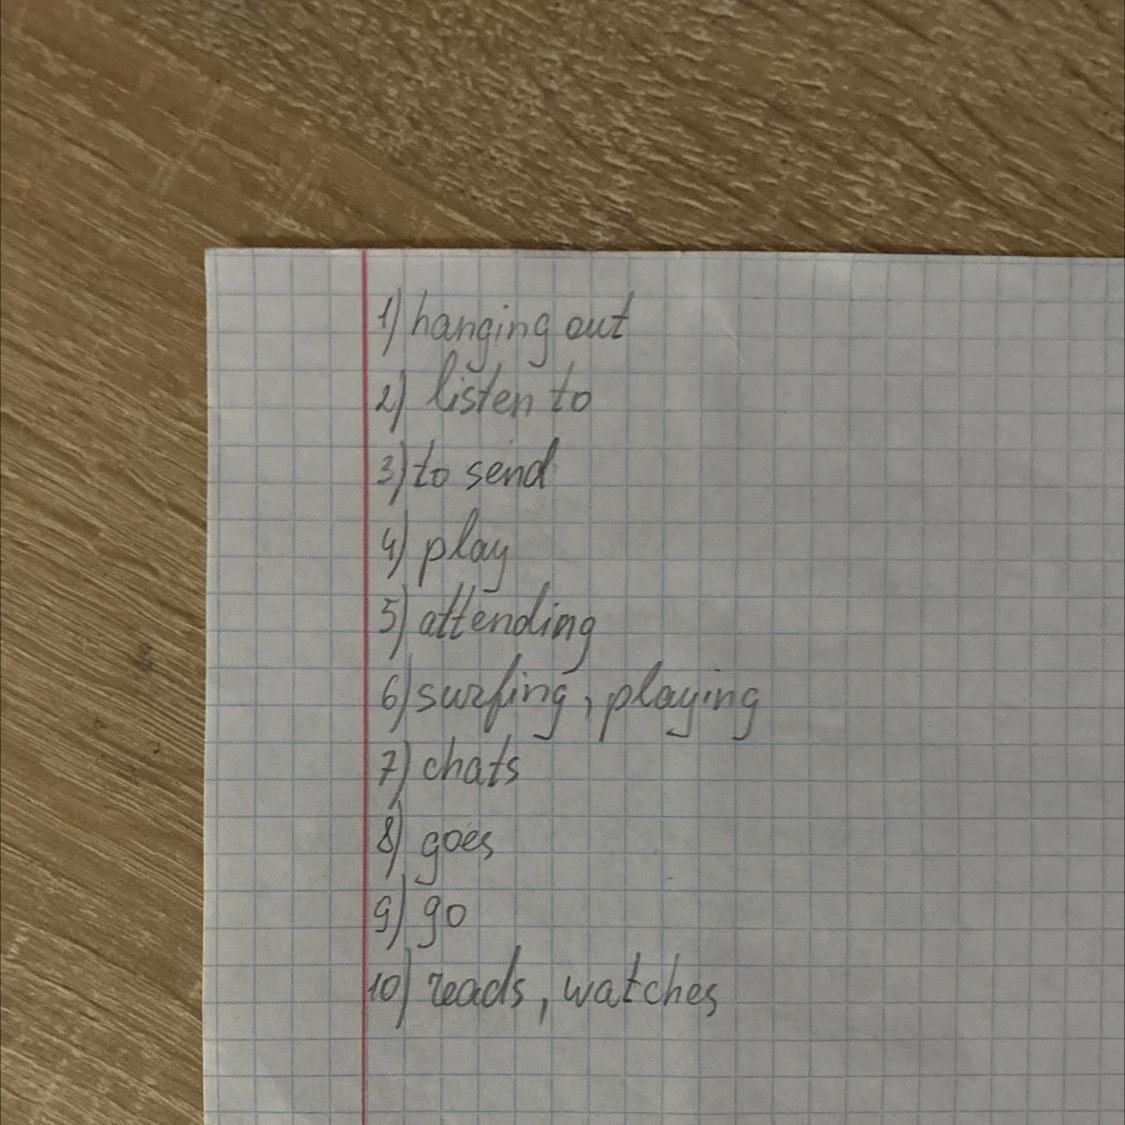 1) hanging out
2) listen to
3) to send
4) play
5) attending
6) surfing, playing
7) chats
8) goes
9) go
10) reads, watches